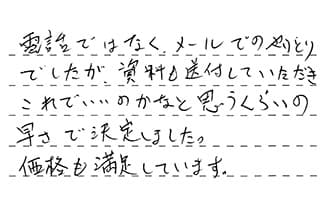 電話ではなく、メールでのやりとり
でしたが、資料も送付していただき
これでいいのかなと思うくらいの
早さで決定しましたっ
価格も満足しています。